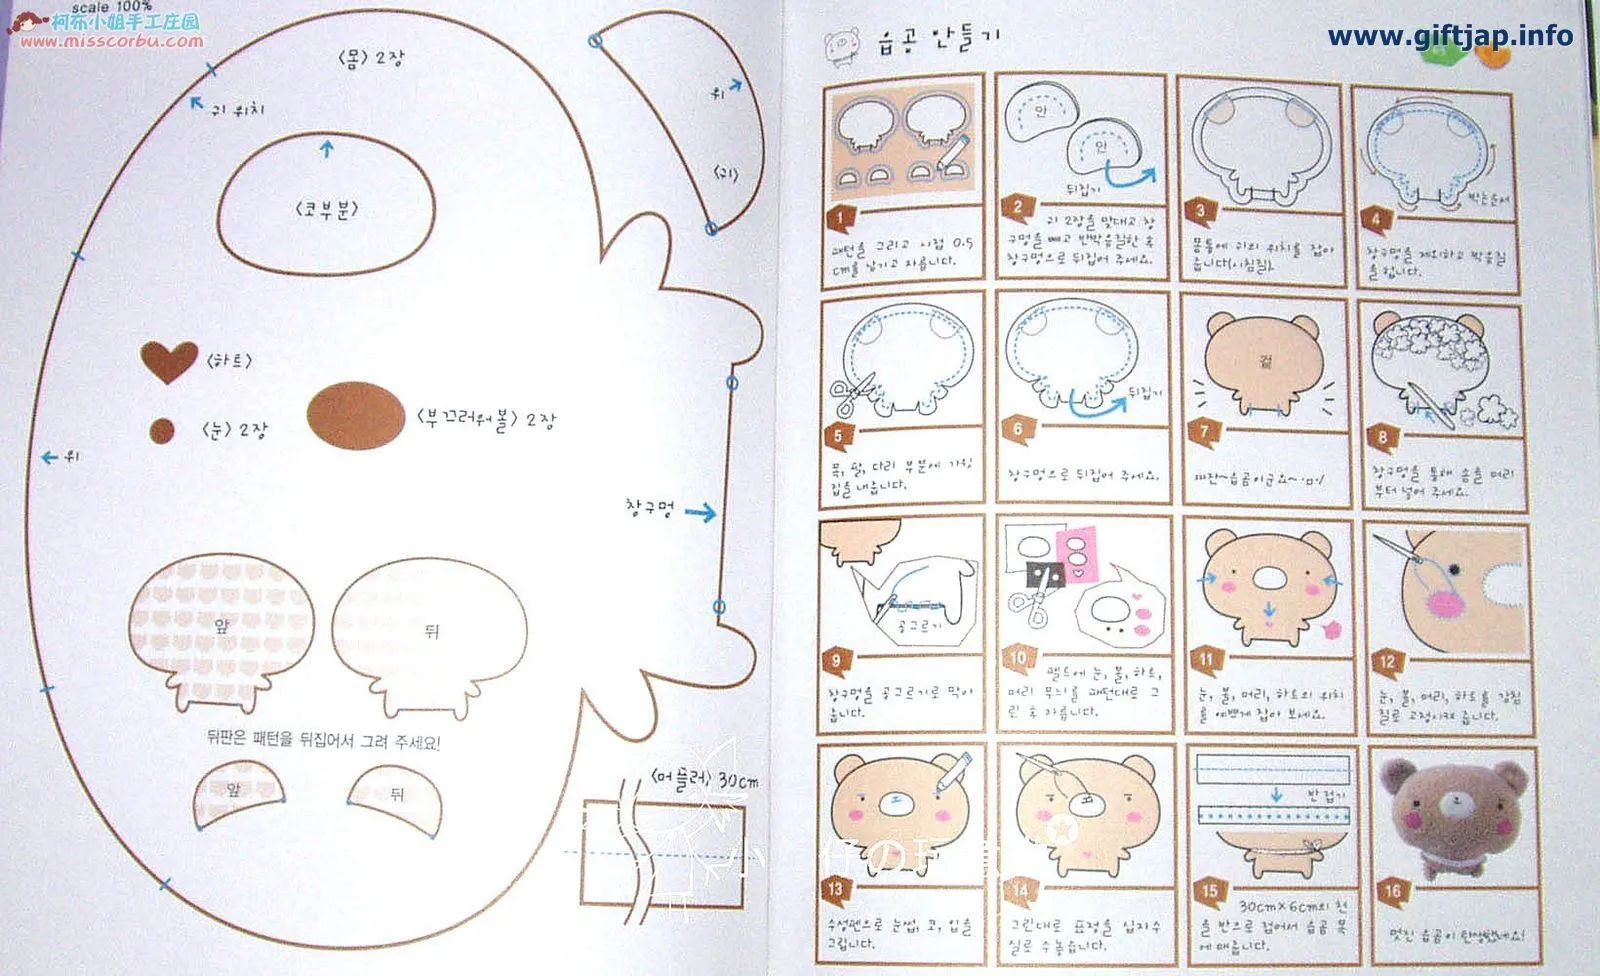 scale 100%
柯布小姐手工庄园
www.misscorbu.com
〈몸〉 2장
귀 위치
〈코부분〉
위
〈귀〉
〈하트〉
〈눈〉 2장
〈부끄러워볼〉 2장
위
창구멍
앞
뒤
뒤판은 패턴을 뒤집어서 그려 주세요!
앞
뒤
〈머플러〉 30cm
www.giftjap.info
읍곰 만들기
1
패턴을 그리고 시접 0.5
cm를 남기고 자릅니다.
안
안
뒤집기
2
귀 2장을 맞대고 창
구멍을 빼고 반박음질한 후
창구멍으로 뒤집어 주세요.
3
몸통에 귀의 위치를 잡아
줍니다(시침질).
박는순서
4
창구멍을 제외하고 박음질
을 합니다.
5
목, 팔, 다리 부분에 가윗
집을 내줍니다.
뒤집기
6
창구멍으로 뒤집어 주세요.
겉
7
짜잔~읍곰이군요~
8
창구멍을 통해 솜을 머리
부터 넣어 주세요.
공그르기
9
창구멍을 공그르기로 막아
줍니다.
10
펠트에 눈, 볼, 하트,
머리 무늬를 패턴대로 그
린 후 자릅니다.
11
눈, 볼, 머리, 하트의 위치
를 예쁘게 잡아 보세요.
12
눈, 볼, 머리, 하트를 감침
질로 고정시켜 줍니다.
13
수성펜으로 눈썹, 코, 입을
그립니다.
14
그린대로 표정을 십자수
실로 수놓습니다.
반 접기
15
30cm×6cm의 천
을 반으로 접어서 읍곰 목
에 매줍니다.
16
멋진 읍곰이 탄생했네요!